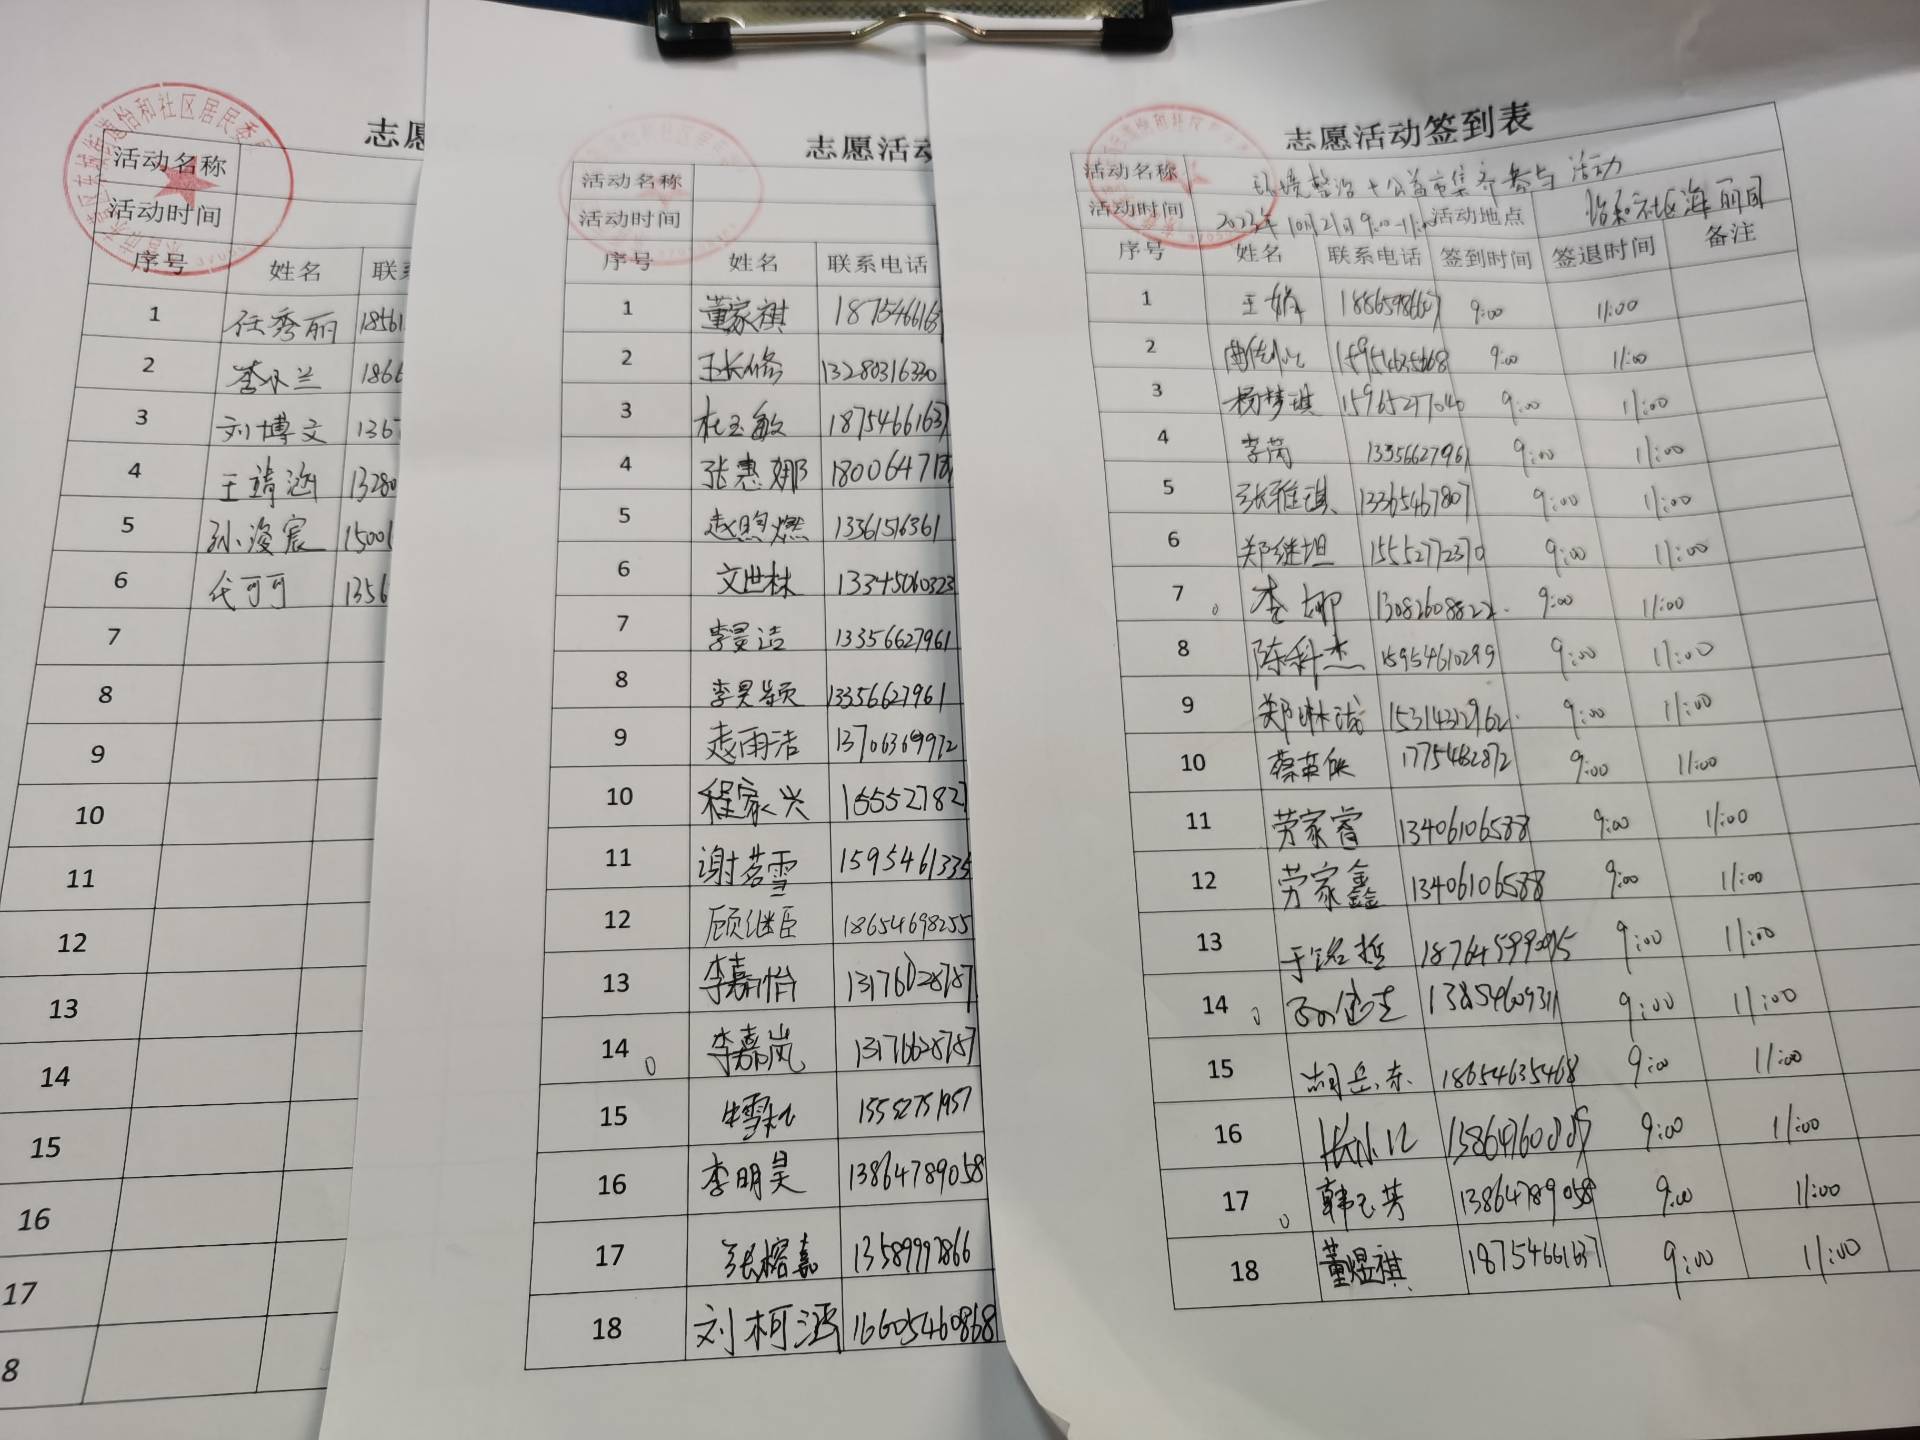 志愿
活动名称
活动时间
序号 姓名 联系
1 任秀丽 18561
2 李小兰 1866
3 刘博文 1367
4 王靖涵 13280
5 孙浚宸 15001
6 代可可 1356
7
8
9
10
11
12
13
14
15
16
17
8
志愿活动
活动名称
活动时间
序号 姓名 联系电话
1 董家祺 1875466163
2 王长修 13280316330
3 杜玉敏 18754661637
4 张惠娜 180064718
5 赵煦燃 13361516361
6 文世林 13345060323
7 李昊洁 13356627961
8 李昊颖 13356627961
9 赵雨洁 13706369972
10 程家兴 155527827
11 谢若雪 1595461335
12 顾继臣 18654698255
13 李嘉怡 13176028787
14 李嘉岚 13176628787
15 15552751957
16 李明昊 13864789058
17 张榕嘉 13589997866
18 刘柯涵 16605460868
志愿活动签到表
活动名称 环境整治+公益市集齐参与活动
活动时间 2023年10月21日9:00-11:00 活动地点 怡和社区海丽园
序号 姓名 联系电话 签到时间 签退时间 备注
1 王婷 18865986667 9:00 11:00
2 15954635668 9:00 11:00
3 杨梦琪 15965277040 9:00 11:00
4 李芮 13356627961 9:00 11:00
5 张雅琪 13365467807 9:00 11:00
6 郑继坦 15552772370 9:00 11:00
7 李娜 13082608822 9:00 11:00
8 陈科杰 15954610299 9:00 11:00
9 郑琳珑 15314322962 9:00 11:00
10 蔡英侠 17754482872 9:00 11:00
11 劳家睿 13406106588 9:00 11:00
12 劳家鑫 13406106588 9:00 11:00
13 于铭哲 9:00 11:00
14 13854609311 9:00 11:00
15 胡岳东 18654635468 9:00 11:00
16 张小江 9:00 11:00
17 韩玉芳 13864789058 9:00 11:00
18 董煜祺 18754661637 9:00 11:00